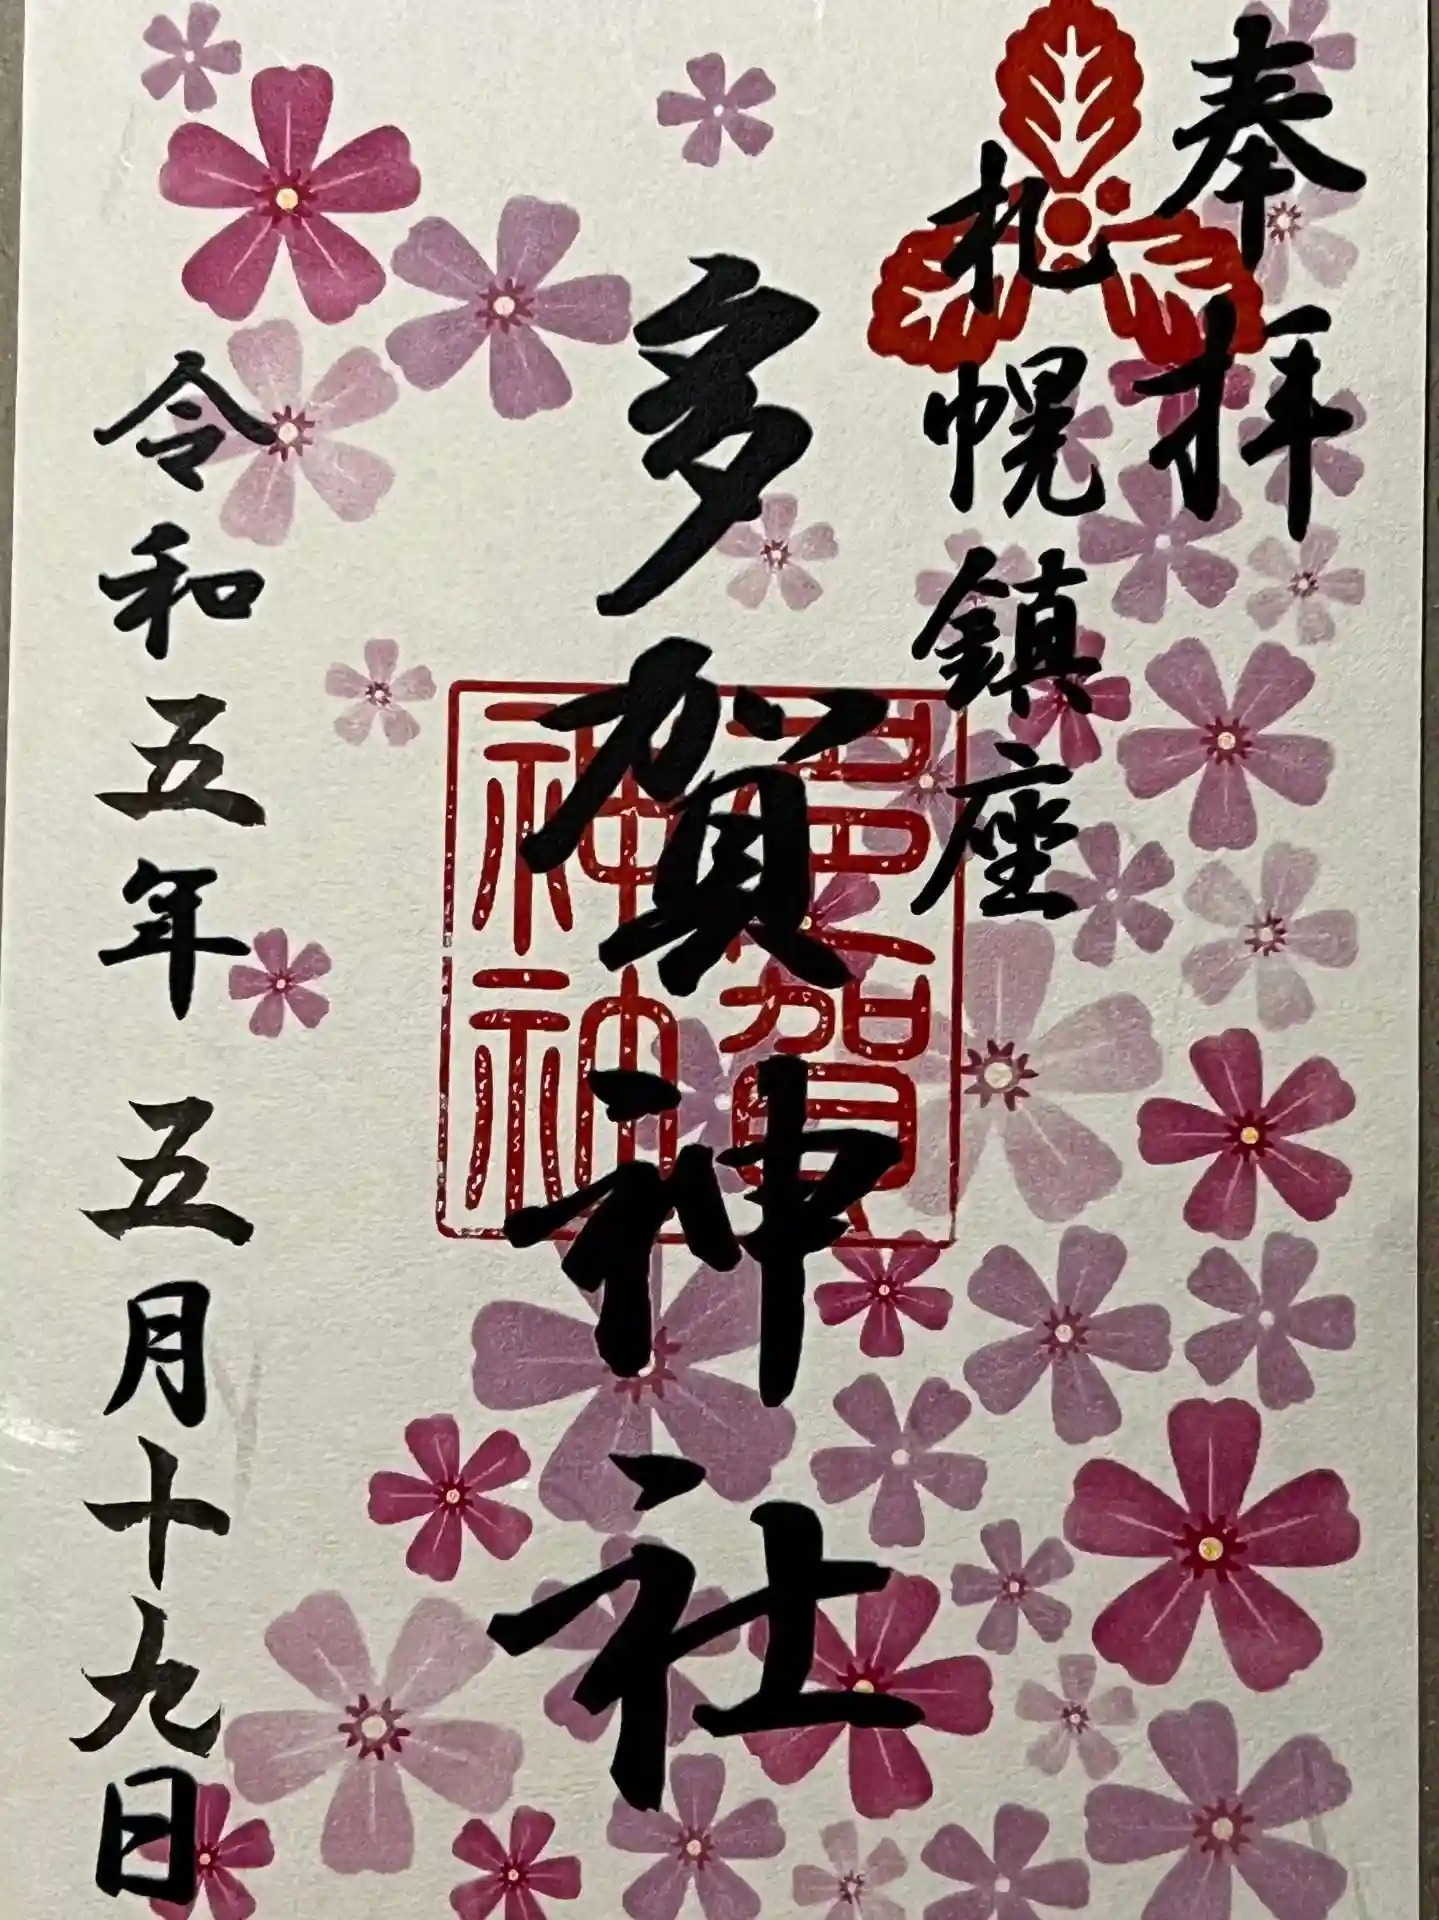 奉拝
札幌鎮座
多賀神社
令和五年 五月十九日